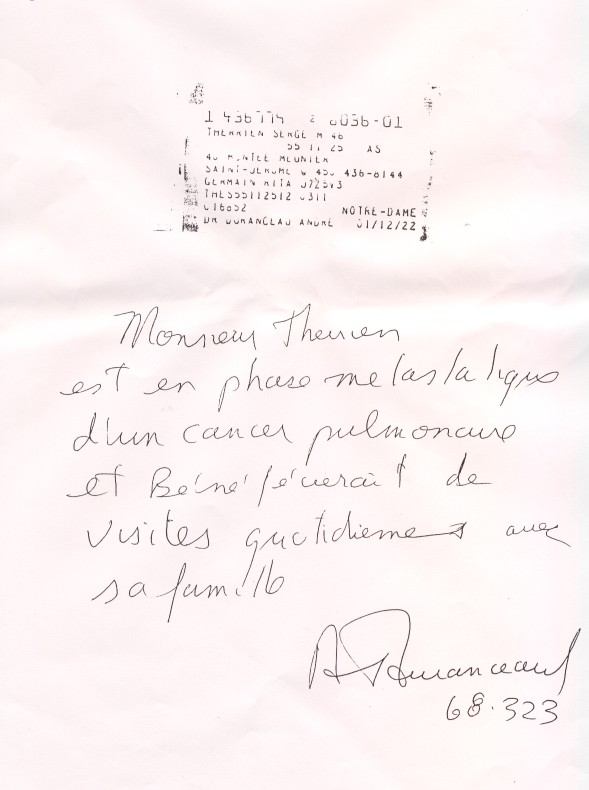 1 436774 2 0036-01
THERRIEN SERGE M 46
55 11 25 AS
40 MONTEE MEUNIER
SAINT-JEROME 450 436-6144
GERMAIN RITA
THES55112512 0311
NOTRE-DAME
DR DURANCEAU ANDRE 01/12/22
Monsieur Therrien
est en phase metastatique
d'un cancer pulmonaire
et Bénéficierait de
visites quotidiennes avec
sa famille
A Duranceau
68.323